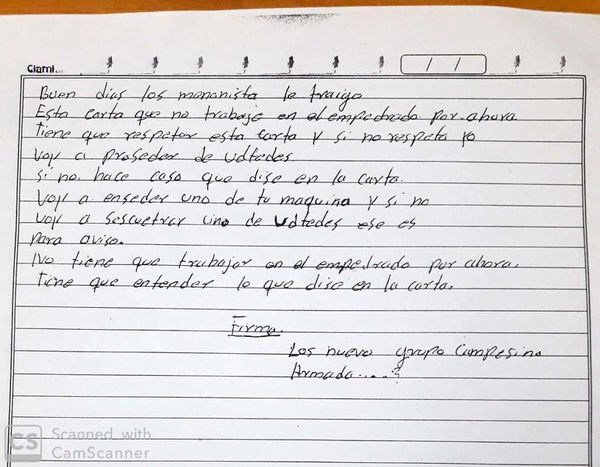 Ciami...
/ /
Buen dias los menonista le traigo
Esta carta que no trabaje en el empedrado por ahora
tiene que respeter esta carta y si no respeta yo
voy a proseder de udtedes
si no hace caso que dise en la carta.
Voy a enseder uno de tu maquina y si no
voy a sescuetrar uno de udtedes ese es
para aviso.
No tiene que trabajar en el empedrado por ahora.
Tine que entender lo que dise en la carta.
Firma
Los nuevo grupo Campesino
Armada....
CS Scanned with
CamScanner